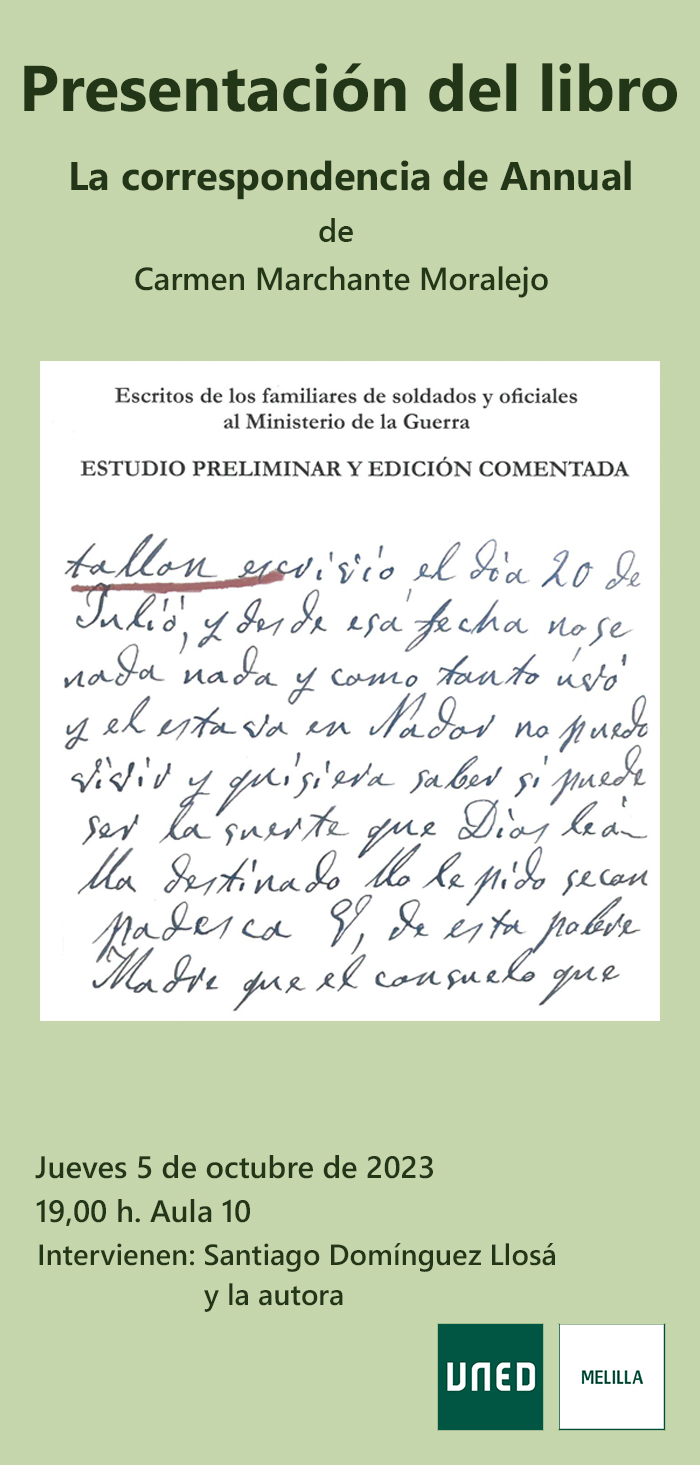 Presentación del libro
La correspondencia de Annual
de
Carmen Marchante Moralejo
Escritos de los familiares de soldados y oficiales
al Ministerio de la Guerra
ESTUDIO PRELIMINAR Y EDICIÓN COMENTADA
tallon escrivió el día 20 de
Julió, y desde esa fecha no se
nada nada y como tanto
y el estava en Nador no puedo
vivir y quisiera saber si puede
ser la suerte que Dios
lla destinado llo le pido secon
padesca V, de esta pobre
Madre que el consuelo que
Jueves 5 de octubre de 2023
19,00 h. Aula 10
Intervienen: Santiago Domínguez Llosá
y la autora
UNED
MELILLA